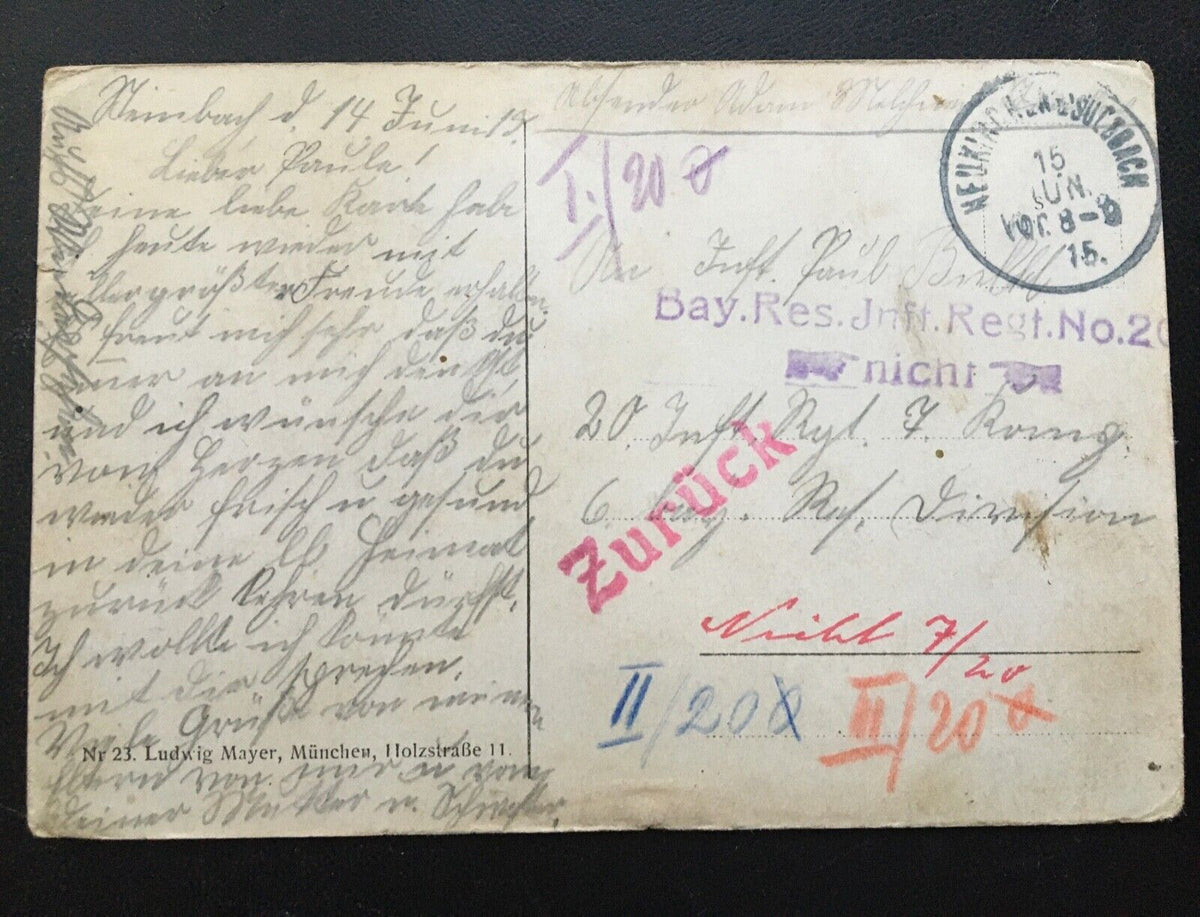 Steinbach d. 14 Juni 15
Lieber Paule!
Deine liebe Karte habe
ich heute wieder mit
allergrößter Freude erhalten
freut mich sehr daß du
immer an mich denkst
und ich wünsche dir
vom Herzen daß du
wieder frisch u gesund
in deine lb Heimat
zurück kehren dürfst.
Ich wollte ich könnte
mit dir sprechen.
Viele Grüße von meinen
Eltern von mir u von
deiner Mutter u. Schwester.
Nr 23. Ludwig Mayer, München, Holzstraße 11.
Absender Adam
NEUKIRCHEN B/SULZBACH
15
JUN.
Vor. 8-9
15.
I./20
An Inft. Paul
Bay.Res.Jnft.Regt.No.20
nicht
20. Inft. Rgt. 7. Komp.
6. bay. Res. Division
Zurück
Nicht 7/20
II/20 III/20